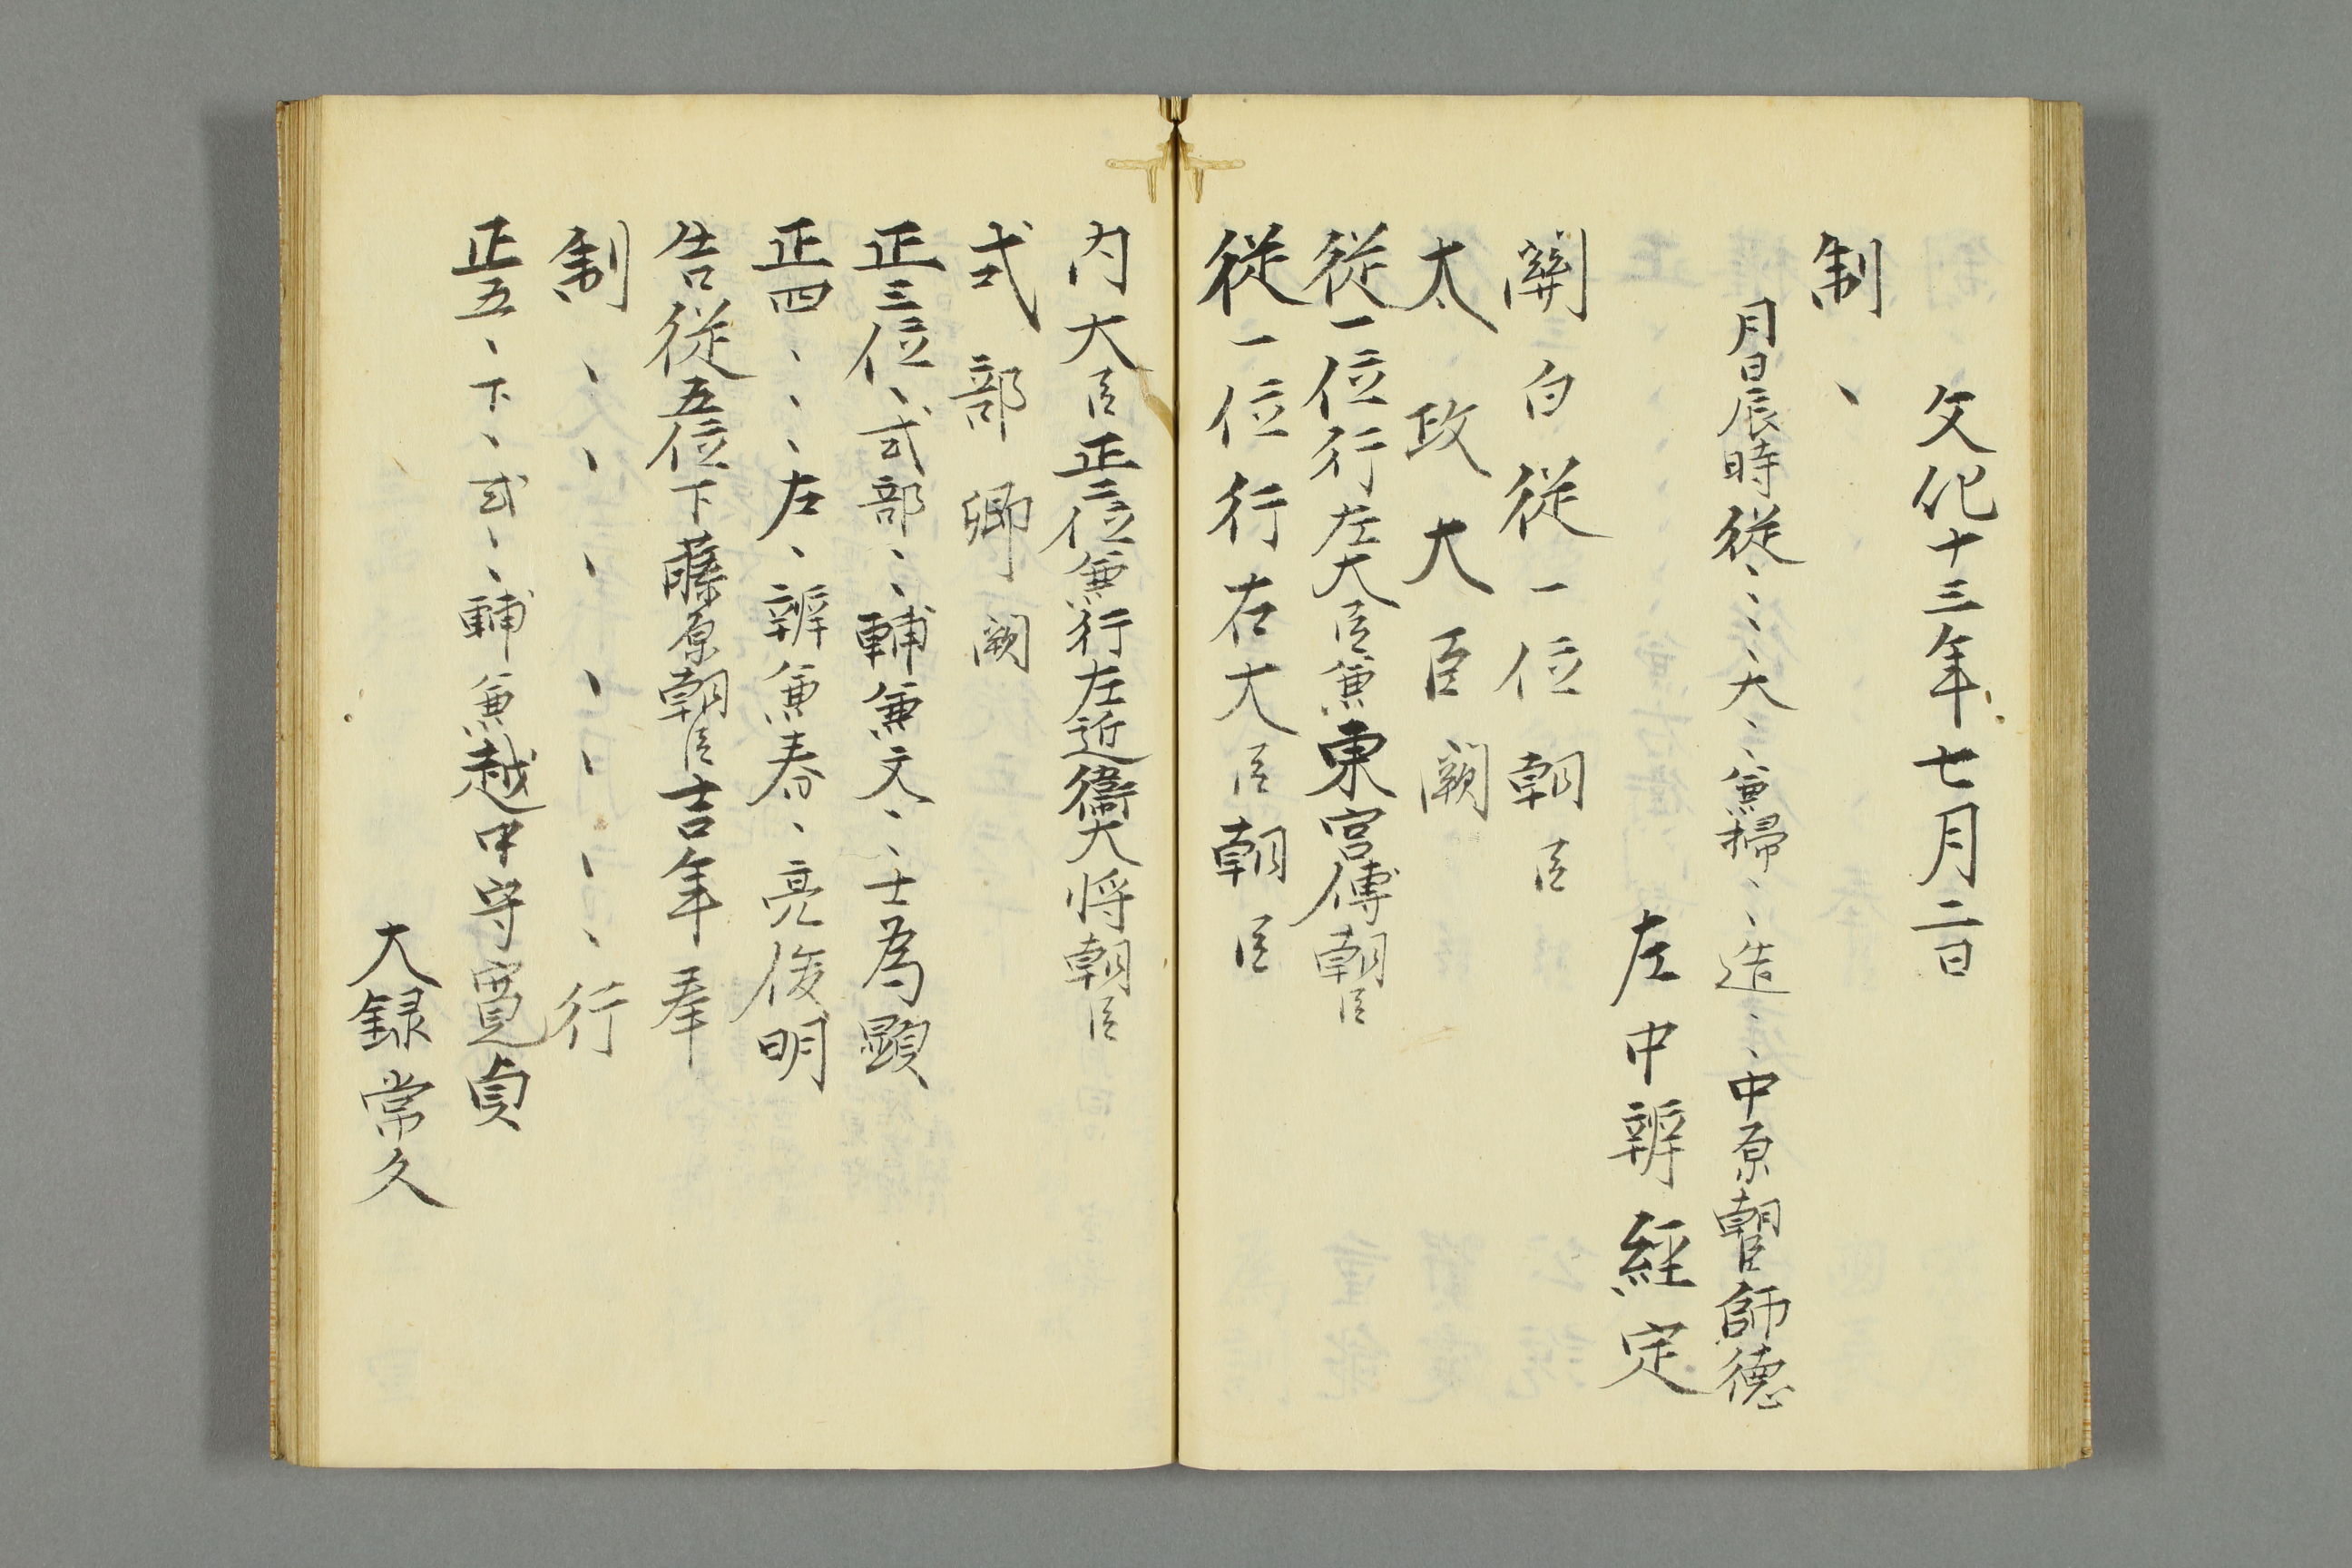 文化十三年七月二日
制、
月日辰時従、、、大、、兼掃、、造、、中原朝臣師徳
左中辨経定
關白従一位朝臣
太政大臣闕
従一位行左大臣兼東宮傅朝臣
従一位行右大臣朝臣
内大臣正二位兼行左近衞大将朝臣
式部卿闕
正三位、式部、、輔兼文、、士為顕
正四、、、左、辨兼春、亮俊明
告従五位下藤原朝臣吉年奉
制、、、、、、、行
正五、下、式、、輔兼越中守寛貞
大録常久